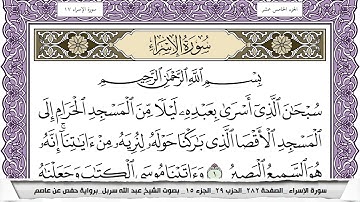 الجزء الخامس عشر
سورة الإسراء ١٧
سُورَةُ الإِسْرَاءِ
بِسْمِ ٱللَّهِ ٱلرَّحْمَٰنِ ٱلرَّحِيمِ
سُبْحَٰنَ ٱلَّذِىٓ أَسْرَىٰ بِعَبْدِهِۦ لَيْلًا مِّنَ ٱلْمَسْجِدِ ٱلْحَرَامِ إِلَى
ٱلْمَسْجِدِ ٱلْأَقْصَا ٱلَّذِى بَٰرَكْنَا حَوْلَهُۥ لِنُرِيَهُۥ مِنْ ءَايَٰتِنَآ إِنَّهُۥ
هُوَ ٱلسَّمِيعُ ٱلْبَصِيرُ ١ وَءَاتَيْنَا مُوسَى ٱلْكِتَٰبَ وَجَعَلْنَٰهُ
سورة الإسراء _الصفحة ٢٨٢_الحزب ٢٩_الجزء ١٥_ بصوت الشيخ عبد الله سريل _برواية حفص عن عاصم